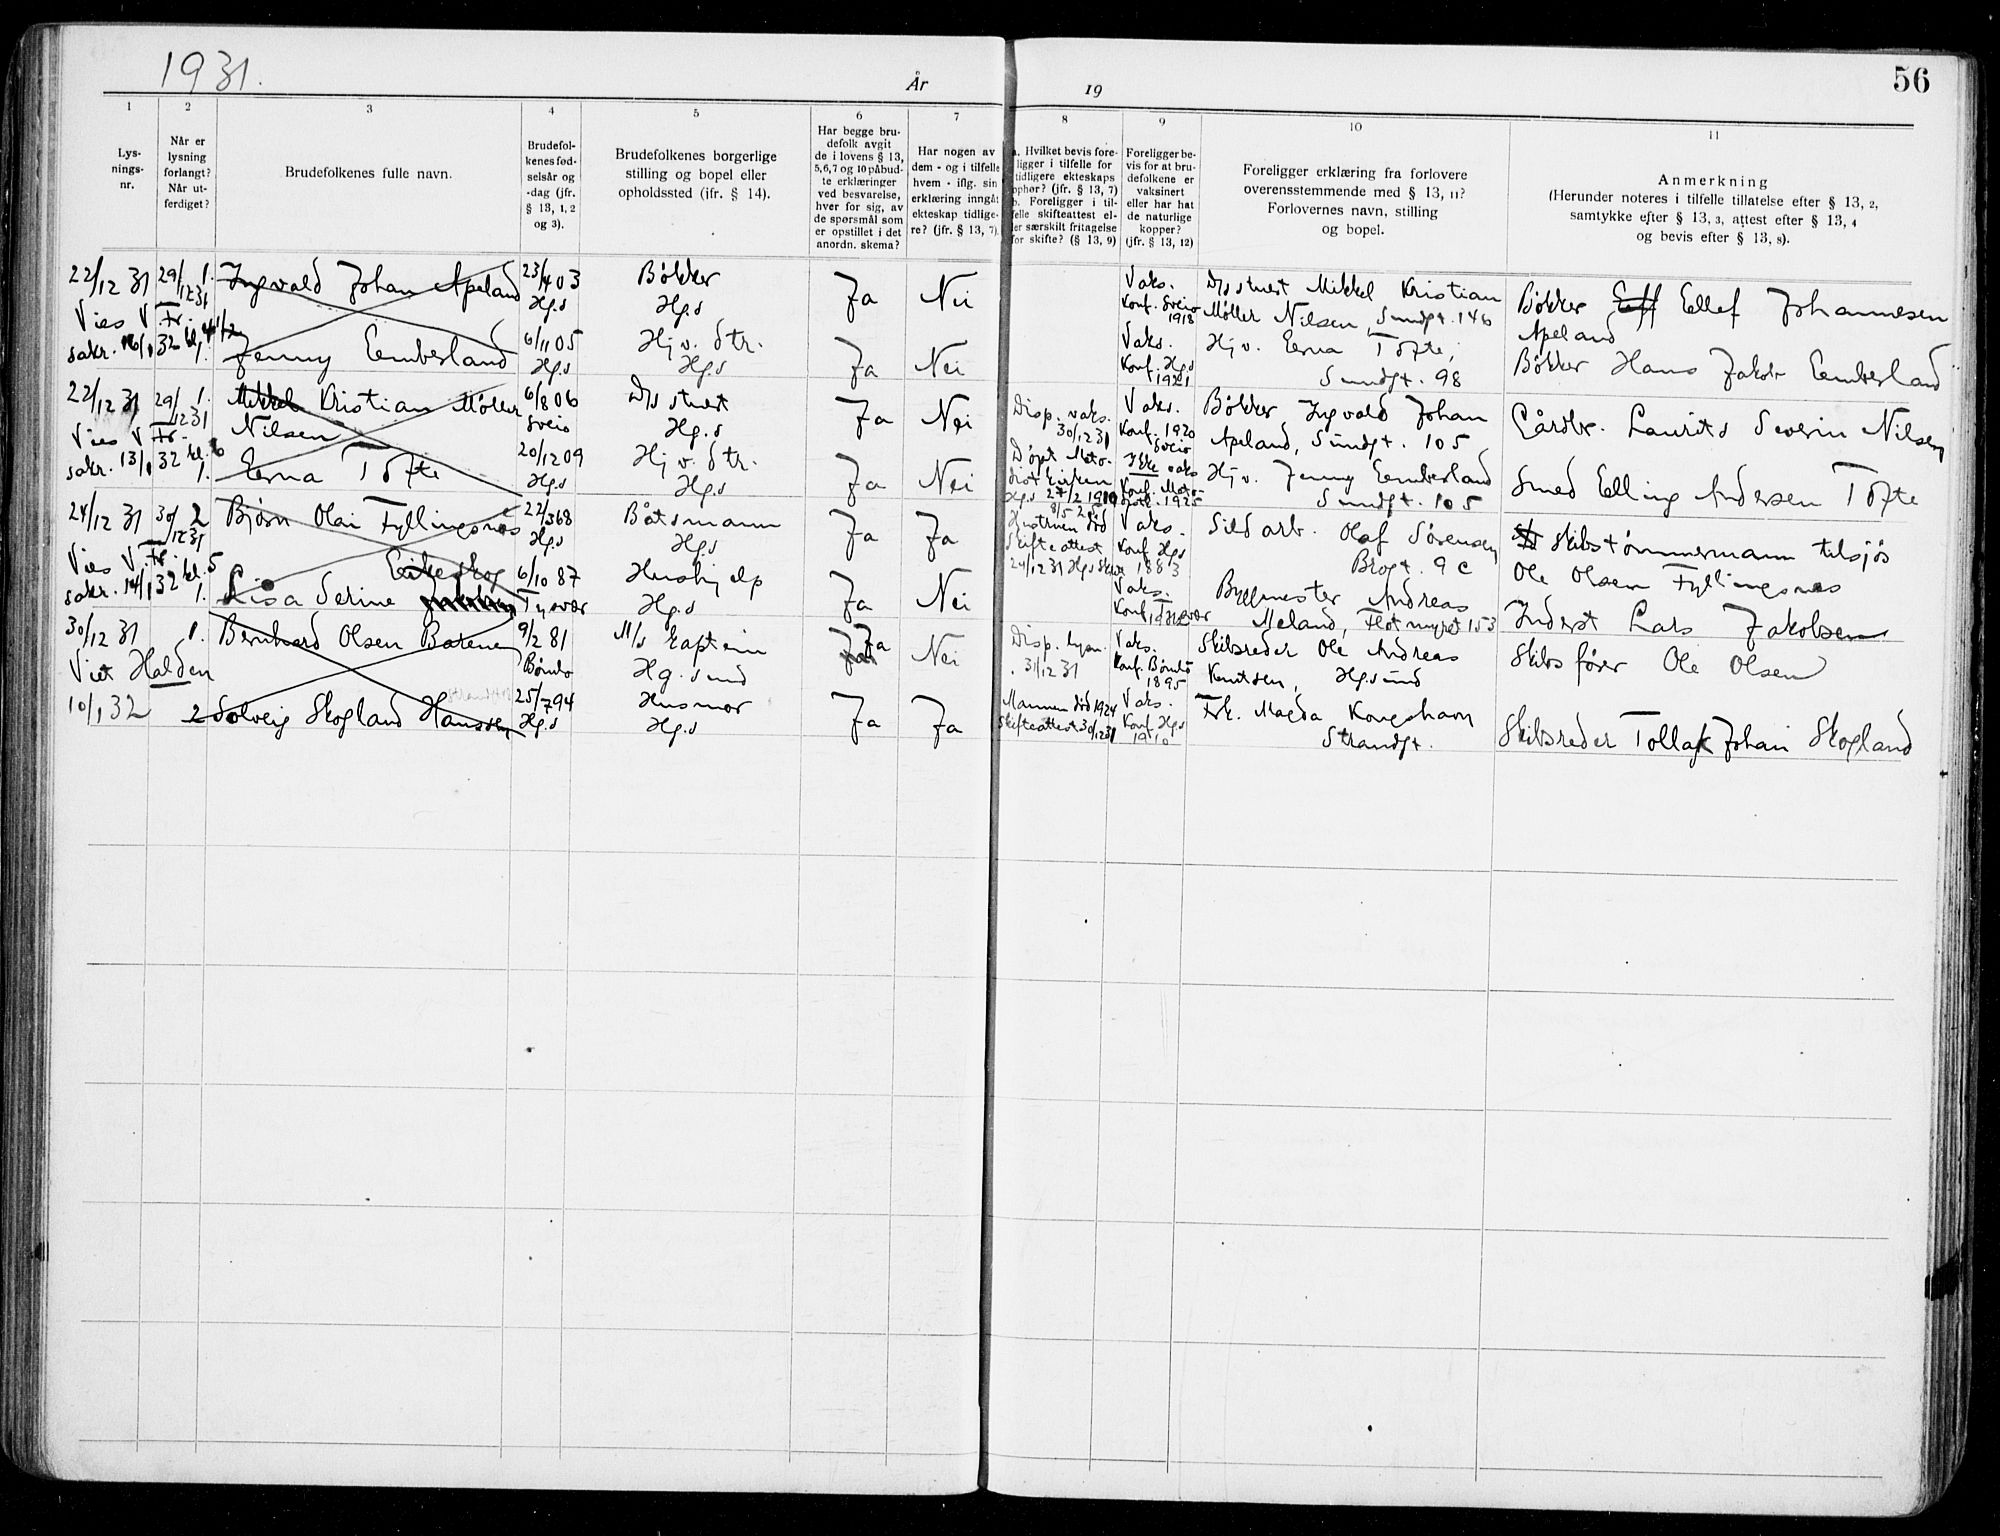 1931.
År
19
56
1
2
3
4
5
6
7
8
9
10
11
Lys-
nings-
nr.
Når er
lysning
forlangt?
Når ut-
ferdiget?
Brudefolkenes fulle navn.
Brudefol-
kenes fød-
selsår og
-dag (jfr.
§ 13, 1, 2
og 3).
Brudefolkenes borgerlige
stilling og bopel eller
opholdssted (ifr. § 14).
Har begge bru-
defolk avgit
de i lovens § 13,
5,6,7 og 10 påbud-
te erklæringer
ved besvarelse,
hver for sig, av
de spørsmål som
er opstillet i det
anordn. skema?
Har nogen av
dem - og i tilfelle
hvem - iflg. sin
erklæring inngåt
ekteskap tidlige-
re? (jfr. § 13, 7).
a. Hvilket bevis fore-
ligger i tilfelle for
tidligere ekteskaps
ophør? (jfr. § 13, 7)
b. Foreligger i til-
felle skifteattest el-
ler særskilt fritagelse
for skifte? (§ 13, 9)
Foreligger be-
vis for at bru-
defolkene er
vaksinert
eller har hat
de naturlige
kopper?
(jfr. § 13, 12)
Foreligger erklæring fra forlovere
overensstemmende med § 13, 11?
Forlovernes navn, stilling
og bopel.
Anmerkning
(Herunder noteres i tilfelle tillatelse efter § 13, 2,
samtykke efter § 13, 3, attest efter § 13, 4
og bevis efter § 13, 8).
22/12 31
29/12 31
1.
Ingvald Johan Apeland
23/4 03
Hg.s
Bøkker
Hg.s
Ja
Nei
Vaks.
Konf. Sveio
1918
D/s stuert Mikkel Kristian
Møller Nilsen, Sundgt. 146
Bøkker Ellef Johannesen
Apeland
Vies V. Fr.
sakr. 16/1 32 kl. 4 1/2
1.
Jenny Emberland
6/11 05
Hg.s
Hj v. Str.
Hg.s
Ja
Nei
Vaks.
Konf. Hg.s
1921
Hj v. Erna Tofte,
Sundgt. 98
Bøkker Hans Jakob Emberland
22/12 31
29/12 31
1.
Mikkel Kristian Møller
Nilsen
6/8 06
Sveio
D/s stuert
Hg.s
Ja
Nei
Disp. vaks.
30/12 31
Vaks.
Konf. 1920
Sveio
Bøkker Ingvald Johan
Apeland, Sundgt. 105
Gårdbr. Laurits Severin Nilsen
Vies V. Fr.
sakr. 13/1 32 kl. 6
1.
Erna Tofte
20/12 09
Hg.s
Hj v. Str.
Hg.s
Ja
Nei
Døpt Meto-
distkirken
Hg.s 27/2 1910
Ikke vaks
Konf. Meto-
distk. 1925
Hj v. Jenny Emberland
Sundgt. 105
Smed Elling Andersen Tofte
24/12 31
30/12 31
2
Bjørn Olai Fyllingsnes
22/3 68
Hg.s
Båtsmann
Hg.s
Ja
Ja
Hustruen død
Skifteattest
24/12 31 Hg. Skifte
Vaks.
Konf Hg.s
1883
Sildarb. Olaf Sørensen
Brogt. 9 c
Skibstømmermann tilsjøs
Ole Olsen Fyllingsnes
Vies V. Fr.
sakr. 14/1 32 kl. 5
1.
Eikeskog
Lisa Serine
6/10 87
Tysvær
Hushjelp
Hg.s
Ja
Nei
Vaks.
Konf. Tysvær
1902
Byggmester Andreas
Meland, Flotmyrgt 153
Inderst Lars Jakobsen
30/12 31
1.
Bernhard Olsen Batenes
9/2 81
Bømlo
M/s kaptein
Hg.sund
Ja
Nei
Disp. lysn.
31/12 31
Vaks.
Konf. Bømlo
1895
Skibsreder Ole Andreas
Knutsen, Hg.sund
Skibsfører Ole Olsen
Viet Halden
10/1 32
2
Solveig Skogland Hanssen
25/7 94
Hg.s
Husmor
Hg.s
Ja
Ja
Mannen død 1924
Skifteattest 30/12 31
Vaks.
Konf Hg.s
1910
Frk. Magda Kongshavn
Strandgt.
Skibsreder Tollak Johan Skogland